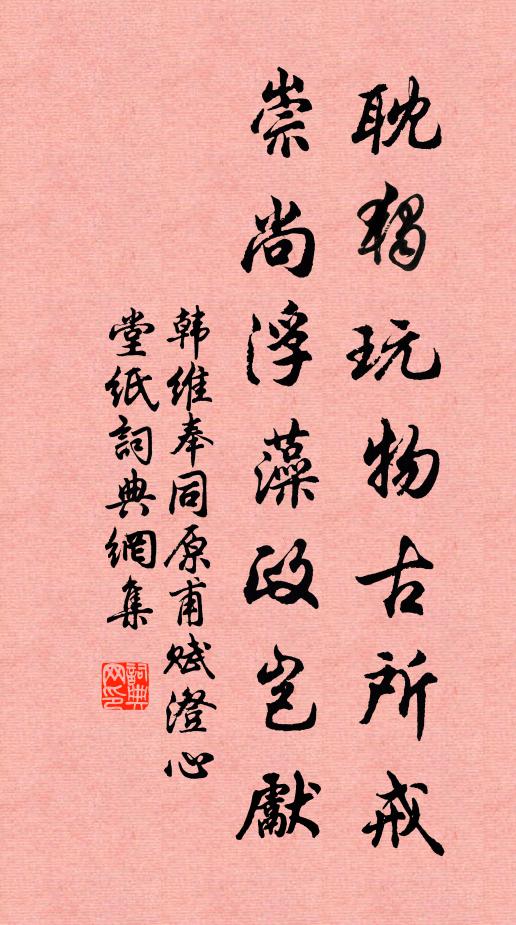 耽獨玩物古所戒
崇尚浮藻政豈獻
韓維奉同原甫賦澄心
堂紙詞典網集
詞典
网印